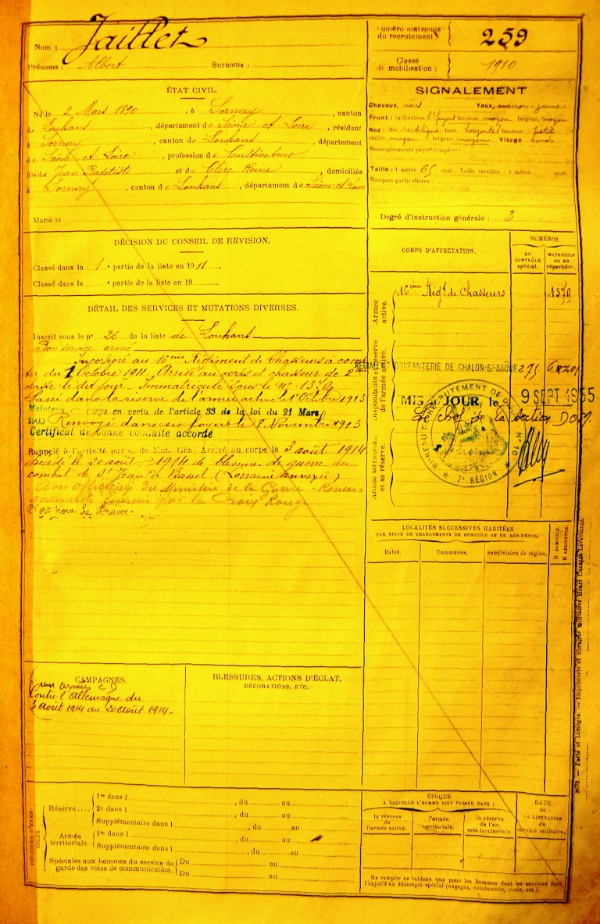 Nom : Jaillet
Prénoms : Albert Surnoms :
Numéro matricule du recrutement : 259
Classe de mobilisation : 1910
ÉTAT CIVIL.
Né le 2 Mars 1890, à Sornay, canton
de Louhans, département de Saône et Loire, résidant
à Sornay, canton de Louhans, département
de Saône et Loire, profession de Cultivateur
fils de Jean Baptiste et de Clerc Reine, domiciliés
à Sornay, canton de Louhans, département de Saône et Loire
Marié le
SIGNALEMENT
Cheveux, noirs Yeux, marron
Front : inclinaison hauteur moyen largeur moyen
Nez : dos rectiligne base horizontal hauteur petite
saillie moyen largeur moyen Visage rond
Renseignements physionomiques
Taille : 1 mètre 65 cent. Taille rectifiée : 1 mètre cent.
Marques particulières :
Degré d'instruction générale : 3
DÉCISION DU CONSEIL DE RÉVISION.
Classé dans la 1e partie de la liste en 1911
Classé dans la partie de la liste en 19
DÉTAIL DES SERVICES ET MUTATIONS DIVERSES.
Inscrit sous le n° 26 de la liste de Louhans
Bon service armé
Incorporé au 16ème Régiment de Chasseurs à comp
ter du 1 Octobre 1911. Arrivé au corps et chasseur de 2e
classe le dit jour. Immatriculé sous le N° 1379
Passé dans la réserve de l'armée active le 1er Octobre 1913
Maintenu corps en vertu de l'article 33 de la loi du 21 Mars
1905 Renvoyé dans ses foyers le 9 Novembre 1913
Certificat de bonne conduite accordé
Rappelé à l'activité par o. de Mob. Gén. Arrivé au corps le 3 août 1914
Décédé le 20 août 1914 de blessures de guerre au
combat de St Jean de Bassel (Lorraine annexée)
officielle du Ministère de la Guerre - Rensei
gnements fournis par la Croix Rouge
CORPS D'AFFECTATION.
NUMÉROS
AU CONTRÔLE spécial.
MATRICULE ou au répertoire.
Armée active.
16ème Régt de Chasseurs
1379
Disponibilité et réserve de l'armée active.
RÉGIMENT D'INFANTERIE DE CHALON-S/-SAÔNE
MIS à JOUR, le 9 SEPT 1935
Le chef de la section
BUREAU DE RECRUTEMENT DE
7e RÉGION
Armée territoriale et sa réserve.
LOCALITÉS SUCCESSIVES HABITÉES.
PAR SUITE DE CHANGEMENTS DE DOMICILE OU DE RÉSIDENCE.
Dates.
Communes.
Subdivision de région.
D. DOMICILE.
R. RÉSIDENCE.
CAMPAGNES.
Contre l'Allemagne du
3 Août 1914 au 20 août 1914.
BLESSURES, ACTIONS D'ÉCLAT,
DÉCORATIONS, ETC.
Réserve
1re dans l , du au
2e dans l , du au
Supplémentaire dans l , du au
Armée territoriale
1re dans l , du au
Supplémentaire dans l , du au
Spéciales aux hommes du service de garde des voies de communication.
Du au
Du au
ÉPOQUE
À LAQUELLE L'HOMME DOIT PASSER DANS :
la réserve de l'armée active.
l'armée territoriale.
la réserve de l'armée territoriale.
DATE
DE LA LIBÉRATION
du service militaire.
Ne remplir ce tableau que pour les hommes dont les services font
l'objet d'un décompte spécial (engagés, condamnés, omis, etc.)